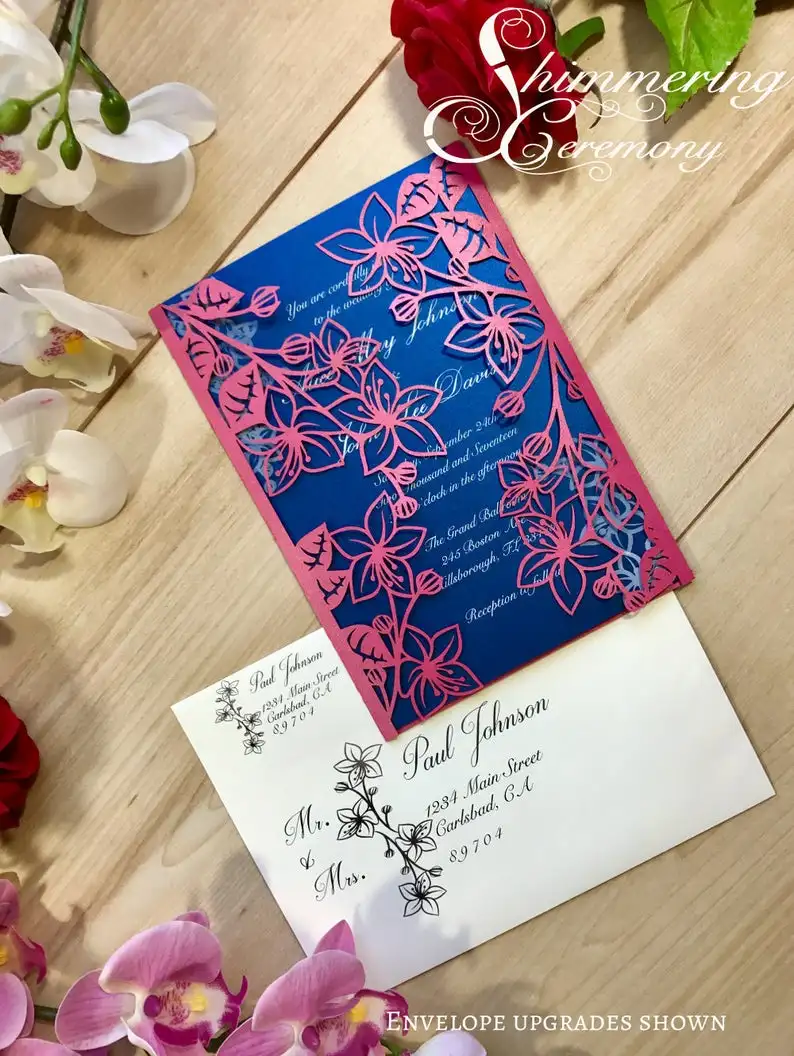 Shimmering
Ceremony
You are cordially
to the wedding
May Johnson
Lee Davis
September 24th
Two Thousand and Seventeen
o'clock in the afternoon
The Grand Ballroom
245 Boston Ave
Hillsborough, FL
Reception to follow
Paul Johnson
1234 Main Street
Carlsbad, CA
89704
Mr.
&
Mrs.
Paul Johnson
1234 Main Street
Carlsbad, CA
89704
Envelope upgrades shown